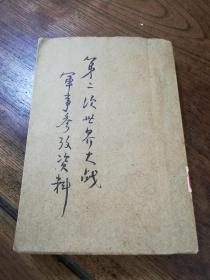 第二次世界大战
军事参攷资料